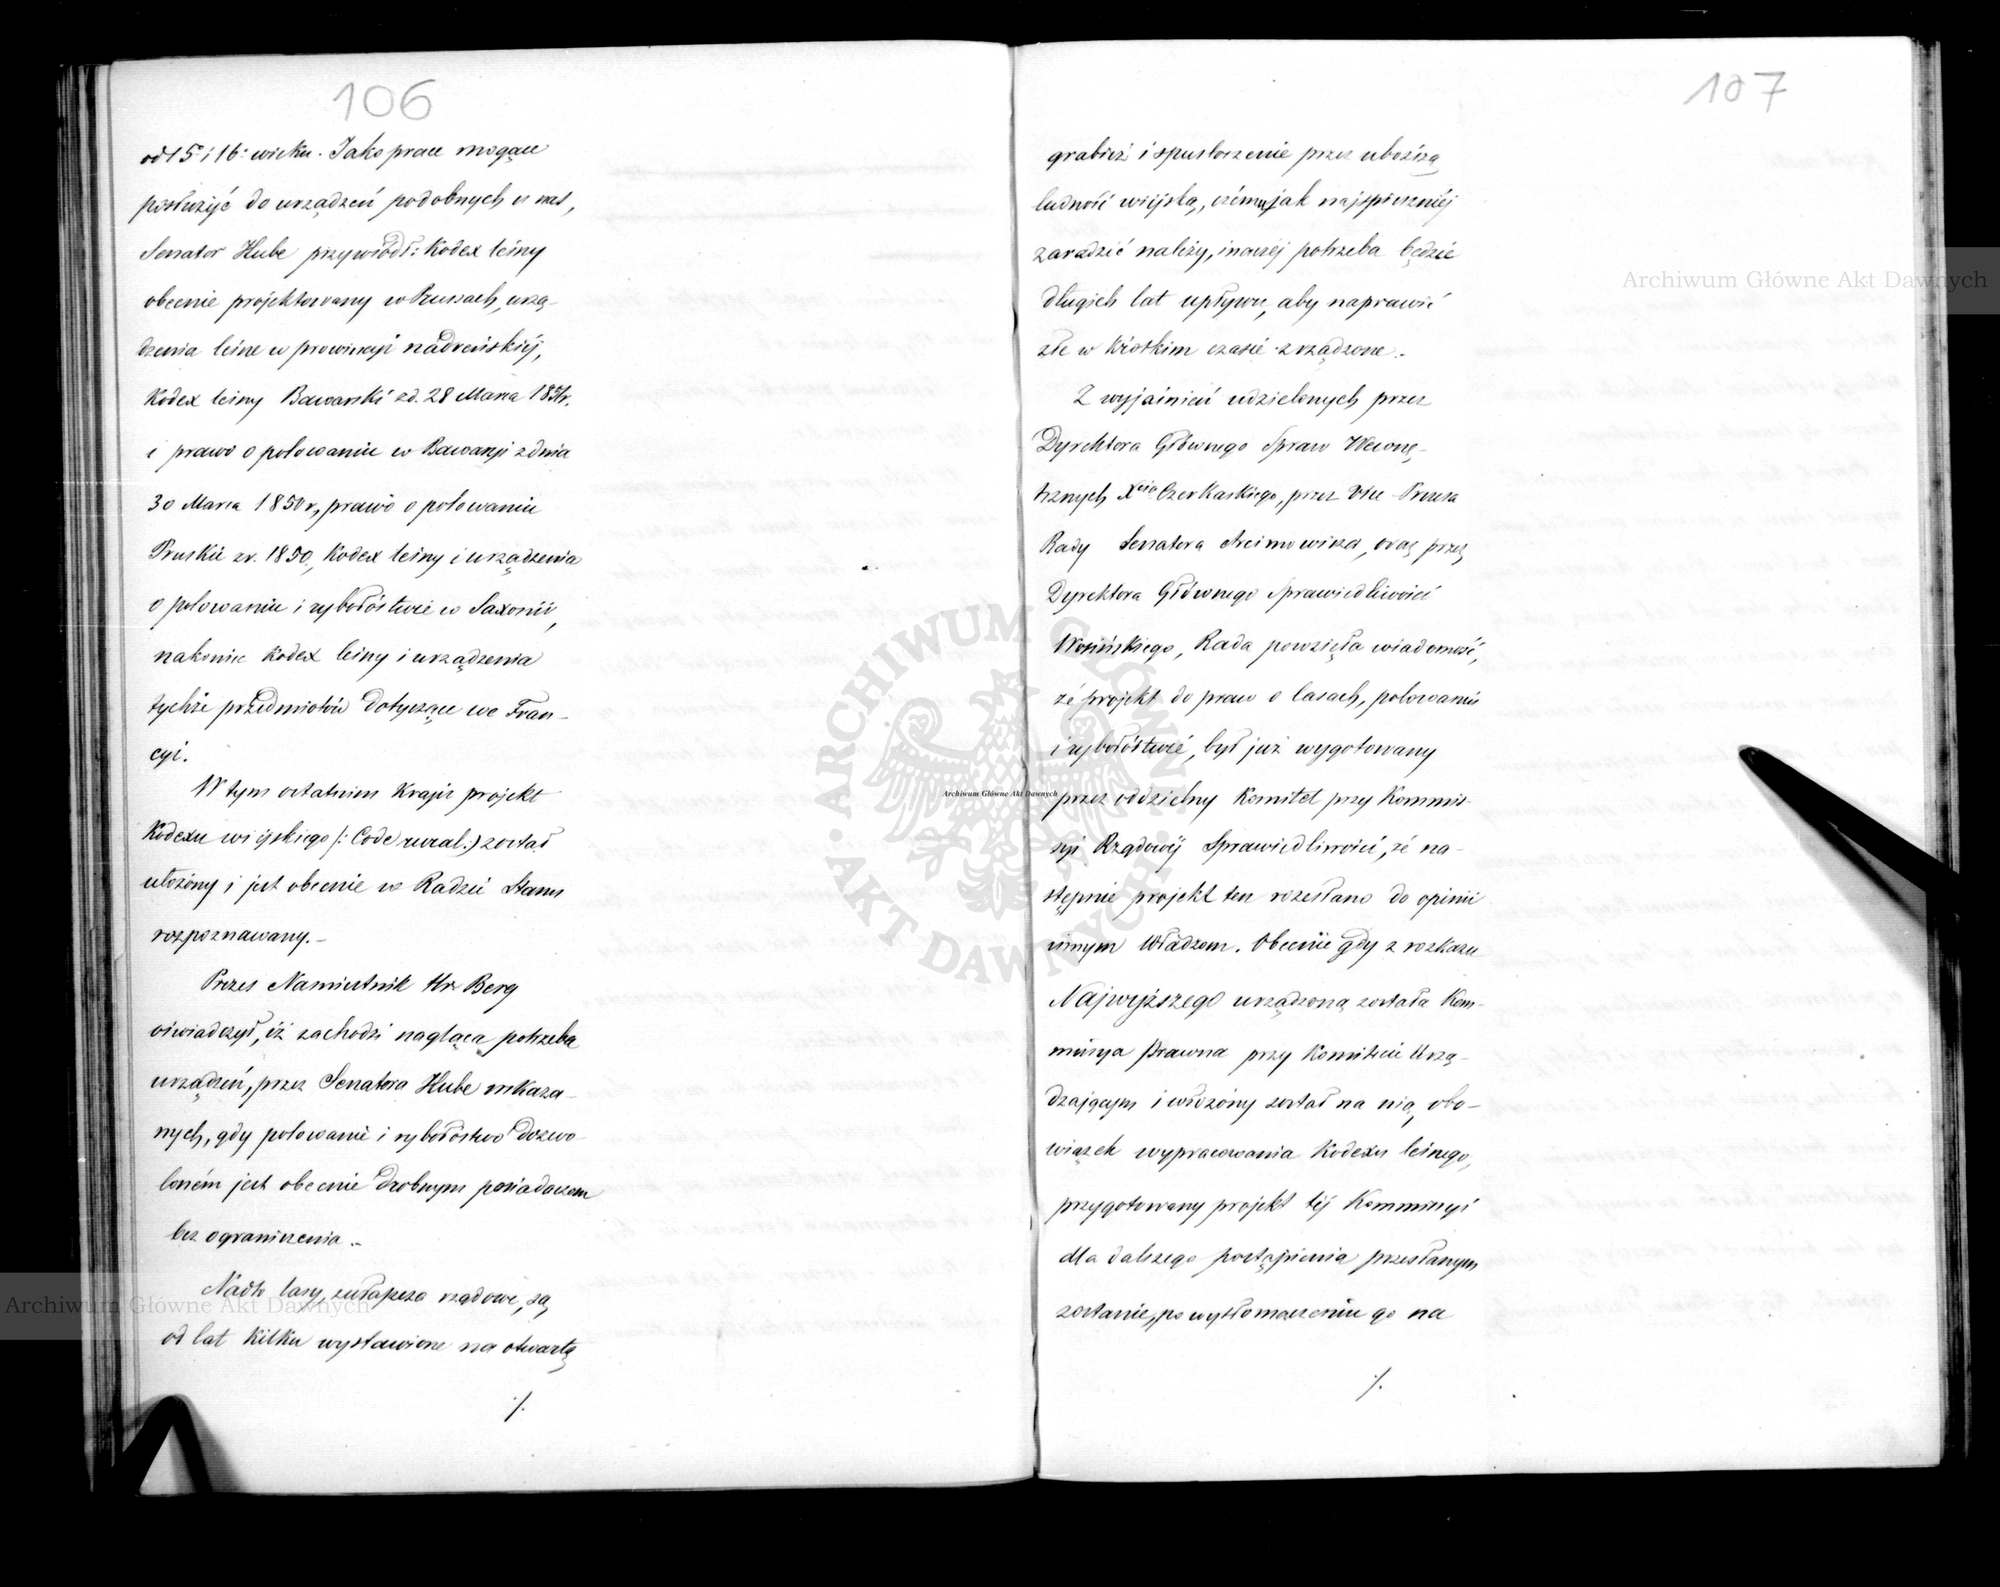 106
od 15º i 16º wieku. Jako prace mogące
posłużyć do urządzeń podobnych u nas,
Senator Hube przywiódł: Kodex leśny
obecnie projektowany w Prusach, urzą-
dzenia leśne w prowincyi nadreńskiéj,
Kodex leśny Bawarski z d. 28 Marca
i prawo o polowaniu w Bawaryi z dnia
30 Marca 1850 r., prawo o polowaniu
Pruskie z r. 1850, Kodex leśny i urządzenia
o polowaniu i rybołóstwie w Saxonii,
nakoniec Kodex leśny i urządzenia
tychże przedmiotów dotyczące we Fran-
cyi.
W tym ostatnim Kraju projekt
Kodexu wiejskiego /: Code rural :/ został
ułożony i jest obecnie w Radzie Stanu
rozpoznawany. –
Prezes Namiestnik Hr. Berg
oświadczył, iż zachodzi nagląca potrzeba
urządzeń, przez Senatora Hube wskaza-
nych, gdy polowanie i rybołóstwo dozwo-
loném jest obecnie drobnym posiadaczom
bez ograniczenia. –
Nadto lasy, zwłaszcza rządowe, są
od lat kilku wystawione na otwartą
./.
107
grabież i spustoszenie przez uboższą
ludność wiejską, czemu jak najspieszniéj
zaradzić należy, inaczéj potrzeba będzie
długich lat upływu, aby naprawić
złe w krótkim czasie zrządzone. –
Z wyjaśnień udzielonych przez
Dyrektora Głównego Spraw Wewnę-
trznych Xcia Czerkaskiego, przez Vice Prezesa
Rady Senatora Arcimowicza, oraz przez
Dyrektora Głównego Sprawiedliwości
Wosińskiego, Rada powzięła wiadomość,
że projekt do praw o lasach, polowaniu
i rybołóstwie, był już wygotowany
przez oddzielny Komitet przy Kommis-
syi Rządowéj Sprawiedliwości, że na-
stępnie projekt ten rozesłano do opinii
innym Władzom. Obecnie gdy z rozkazu
Najwyższego urządzoną została Kom-
missya Prawna przy Komitecie Urzą-
dzającym i włożony został na nią obo-
wiązek wypracowania Kodexu leśnego,
przygotowany projekt téj Kommissyi
dla dalszego postąpienia przesłanym
zostanie, po wytłomaczeniu go na
./.
Archiwum Główne Akt Dawnych
Archiwum Główne Akt Dawnych
Archiwum Główne Akt Dawnych
ARCHIWUM GŁÓWNE AKT DAWNYCH